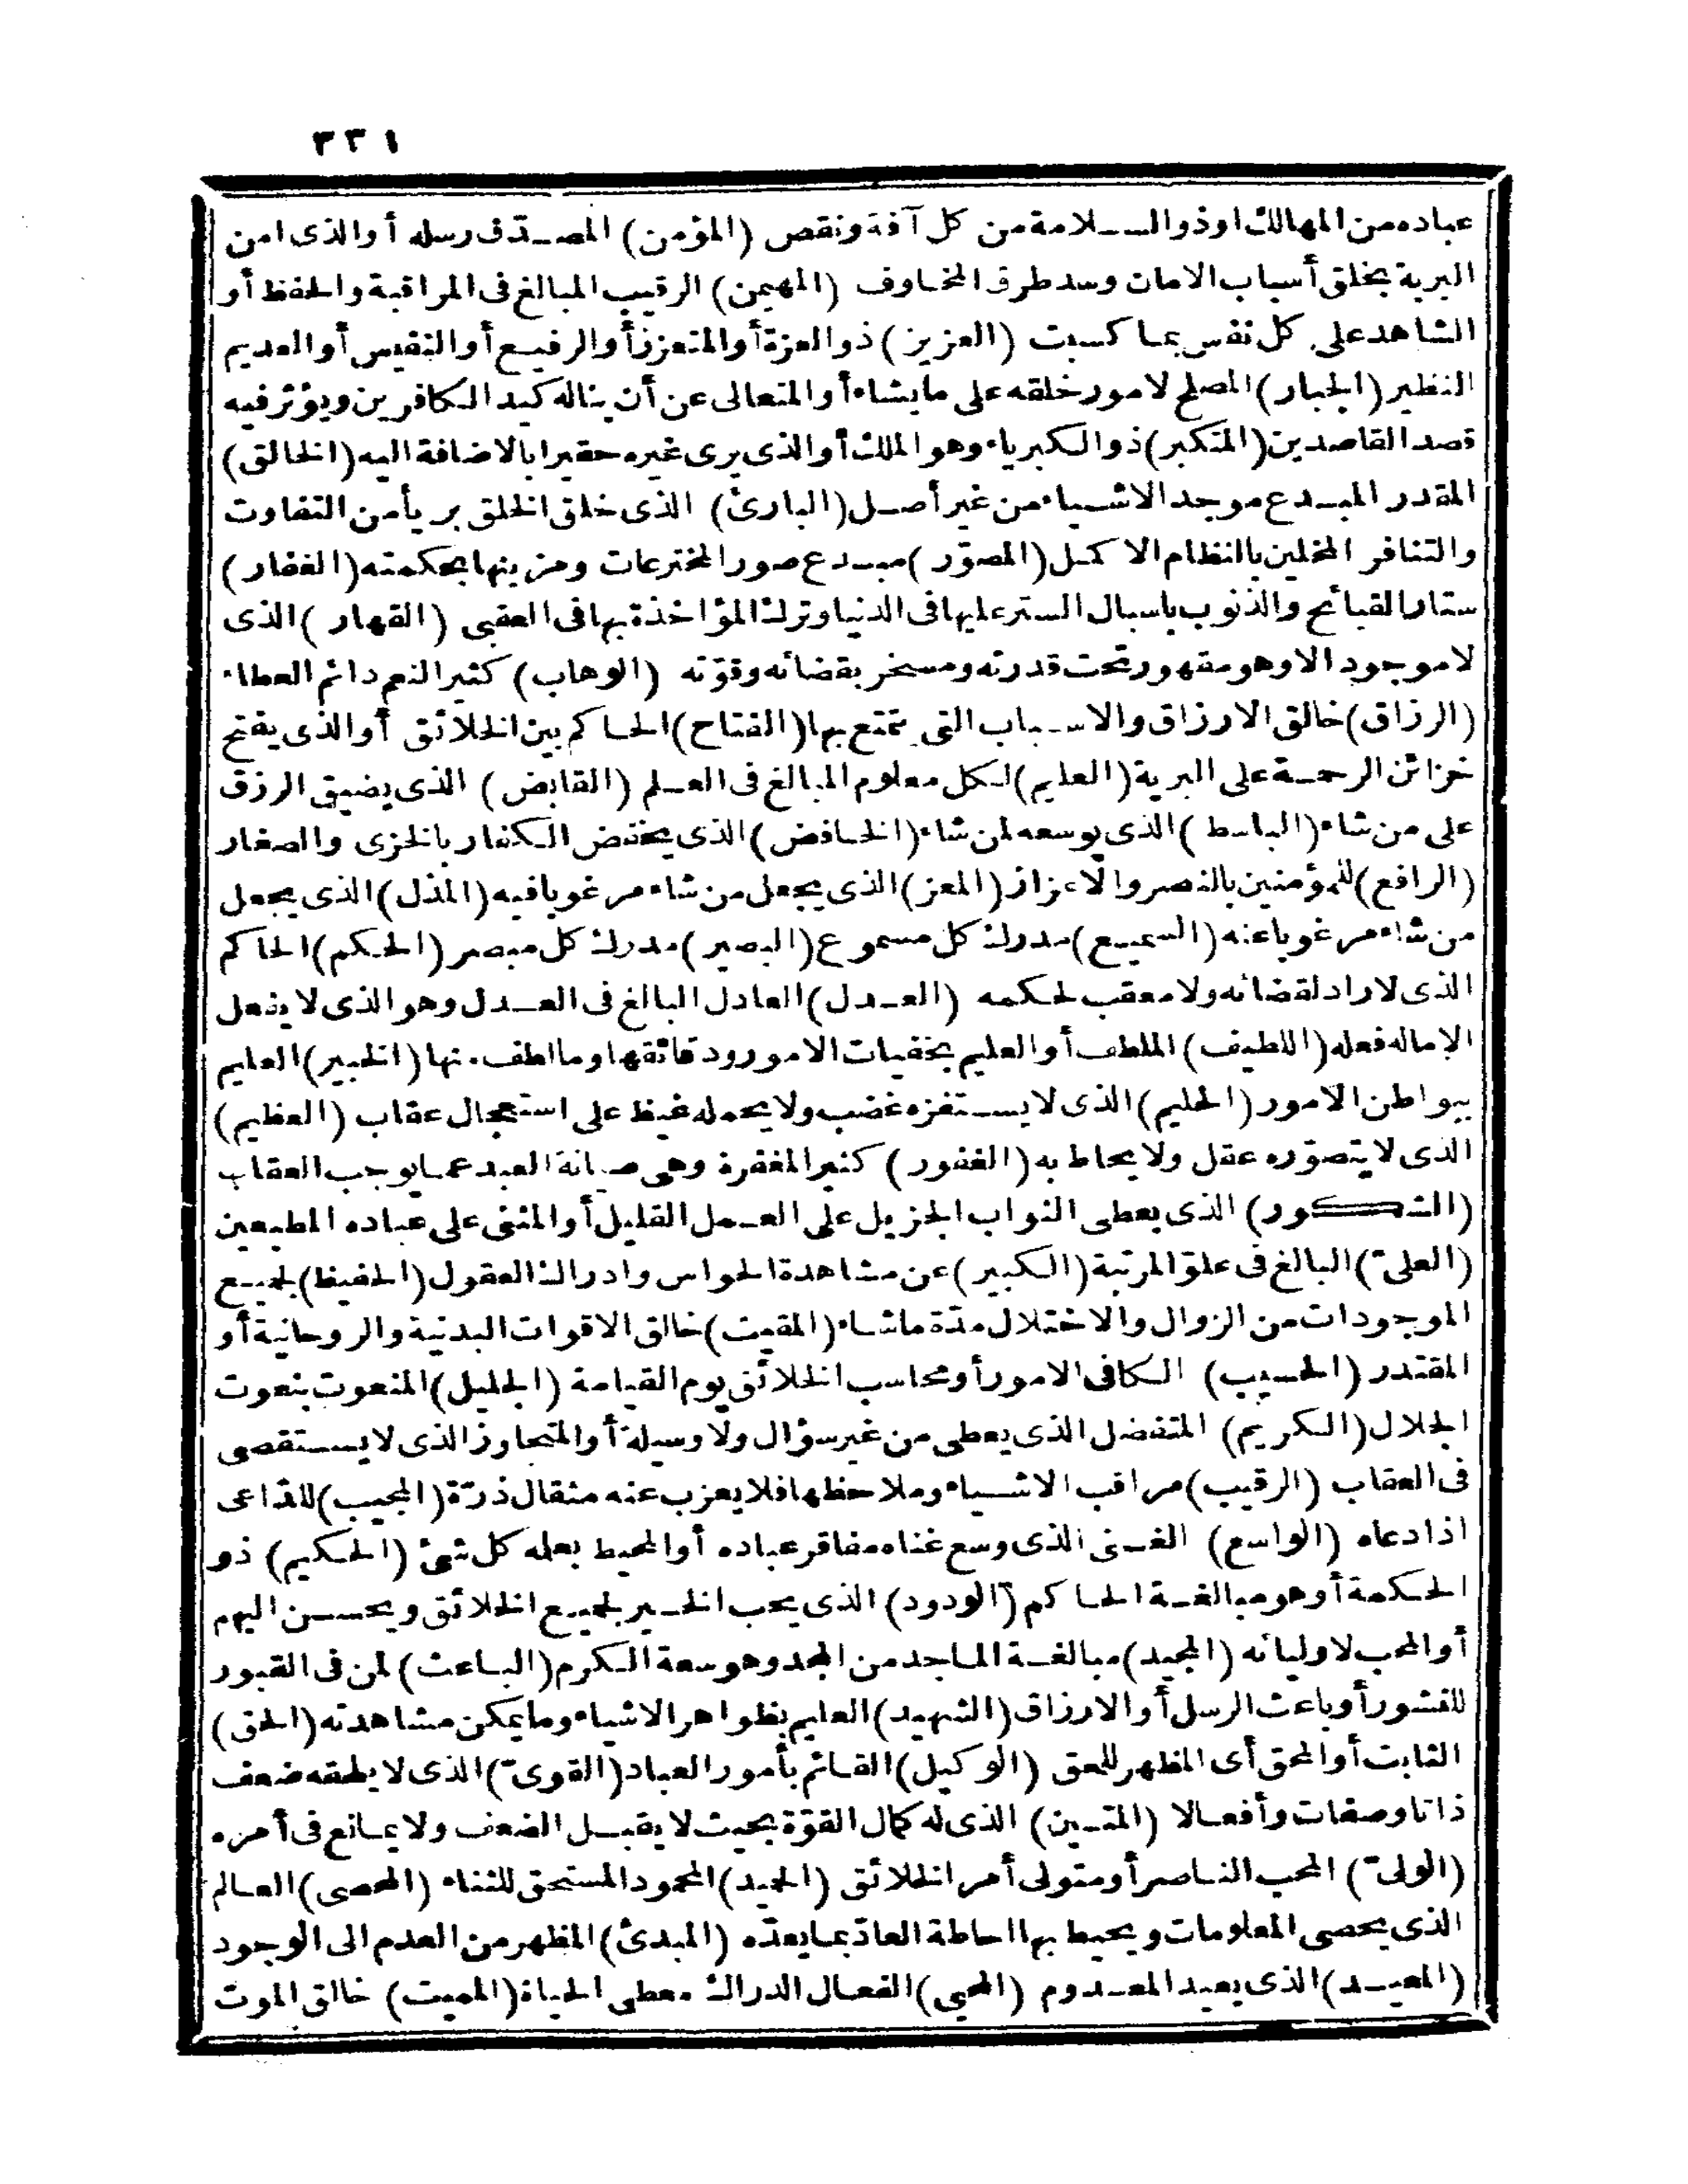 ٣٣١
عباده من المهالك اوذو السلامة من كل آفة ونقص (المؤمن) المصدّق رسله أو الذى امن
البرية بخلق أسباب الامان وسد طرق المخاوف (المهيمن) الرقيب المبالغ فى المراقبة والحفظ أو
الشاهد على كل نفس بما كسبت (العزيز) ذو العزة أو المتعزز أو الرفيع أو النفيس أو العديم
النظير (الجبار) المصلح لامور خلقه على ما يشاء أو المتعالى عن أن يناله كيد الكافرين ويؤثر فيه
قصد القاصدين (المتكبر) ذو الكبرياء وهو الملك أو الذى يرى غيره حقيرا بالاضافة اليه (الخالق)
المقدر المبدع موجد الاشياء من غير أصل (البارئ) الذى خلق الخلق بريأ من التفاوت
والتنافر المخلين بالنظام الاكمل (المصوّر) مبدع صور المخترعات ومزينها بحكمته (الغفار)
ستار القبائح والذنوب باسبال الستر عليها فى الدنيا وترك المؤاخذة بها فى العقبى (القهار) الذى
لا موجود الا وهو مقهور تحت قدرته ومسخر بقضائه وقوّته (الوهاب) كثير النعم دائم العطاء
(الرزاق) خالق الارزاق والاسباب التى يتمتع بها (الفتاح) الحاكم بين الخلائق أو الذى يفتح
خزائن الرحمة على البرية (العليم) لكل معلوم المبالغ فى العلم (القابض) الذى يضيق الرزق
على من شاء (الباسط) الذى يوسعه لمن شاء (الخافض) الذى يخفض الكفار بالخزى والصغار
(الرافع) للمؤمنين بالنصر والاعزاز (المعز) الذى يجعل من شاء مرغوبا فيه (المذل) الذى يجعل
من شاء مرغوبا عنه (السميع) مدرك كل مسموع (البصير) مدرك كل مبصر (الحكم) الحاكم
الذى لا راد لقضائه ولا معقب لحكمه (العدل) العادل البالغ فى العدل وهو الذى لا يفعل
الا ما له فعله (اللطيف) الملطف أو العليم بخفيات الامور ودقائقها وما لطف منها (الخبير) العليم
ببواطن الامور (الحليم) الذى لا يستفزه غضب ولا يحمله غيظ على استعجال عقاب (العظيم)
الذى لا يتصوّره عقل ولا يحاط به (الغفور) كثير المغفرة وهى صيانة العبد عما يوجب العقاب
(الشكور) الذى يعطى الثواب الجزيل على العمل القليل أو المثنى على عباده المطيعين
(العلىّ) البالغ فى علوّ المرتبة (الكبير) عن مشاهدة الحواس وادراك العقول (الحفيظ) لجميع
الموجودات من الزوال والاختلال مدّة ما شاء (المقيت) خالق الاقوات البدنية والروحانية أو
المقتدر (الحسيب) الكافى الامور أو محاسب الخلائق يوم القيامة (الجليل) المنعوت بنعوت
الجلال (الكريم) المتفضل الذى يعطى من غير سؤال ولا وسيلة أو المتجاوز الذى لا يستقصى
فى العقاب (الرقيب) مراقب الاشياء وملاحظها فلا يعزب عنه مثقال ذرّة (المجيب) للداعى
اذا دعاه (الواسع) الغنى الذى وسع غناه مفاقر عباده أو المحيط بعلمه كل شئ (الحكيم) ذو
الحكمة أو هو مبالغة الحاكم (الودود) الذى يحب الخير لجميع الخلائق ويحسن اليهم
أو المحب لاوليائه (المجيد) مبالغة الماجد من المجد وهو سعة الكرم (الباعث) لمن فى القبور
للنشور أو باعث الرسل أو الارزاق (الشهيد) العليم بظواهر الاشياء وما يمكن مشاهدته (الحق)
الثابت أو المحق أى المظهر للحق (الوكيل) القائم بأمور العباد (القوىّ) الذى لا يلحقه ضعف
ذاتا وصفات وأفعالا (المتين) الذى له كمال القوّة بحيث لا يقبل الضعف ولا يمانع فى أمره
(الولىّ) المحب الناصر أو متولى أمر الخلائق (الحميد) المحمود المستحق للثناء (المحصى) العالم
الذى يحصى المعلومات ويحيط بها احاطة العادّ بما يعدّه (المبدئ) المظهر من العدم الى الوجود
(المعيد) الذى يعيد المعدوم (المحيى) الفعال الدراك معطى الحياة (المميت) خالق الموت